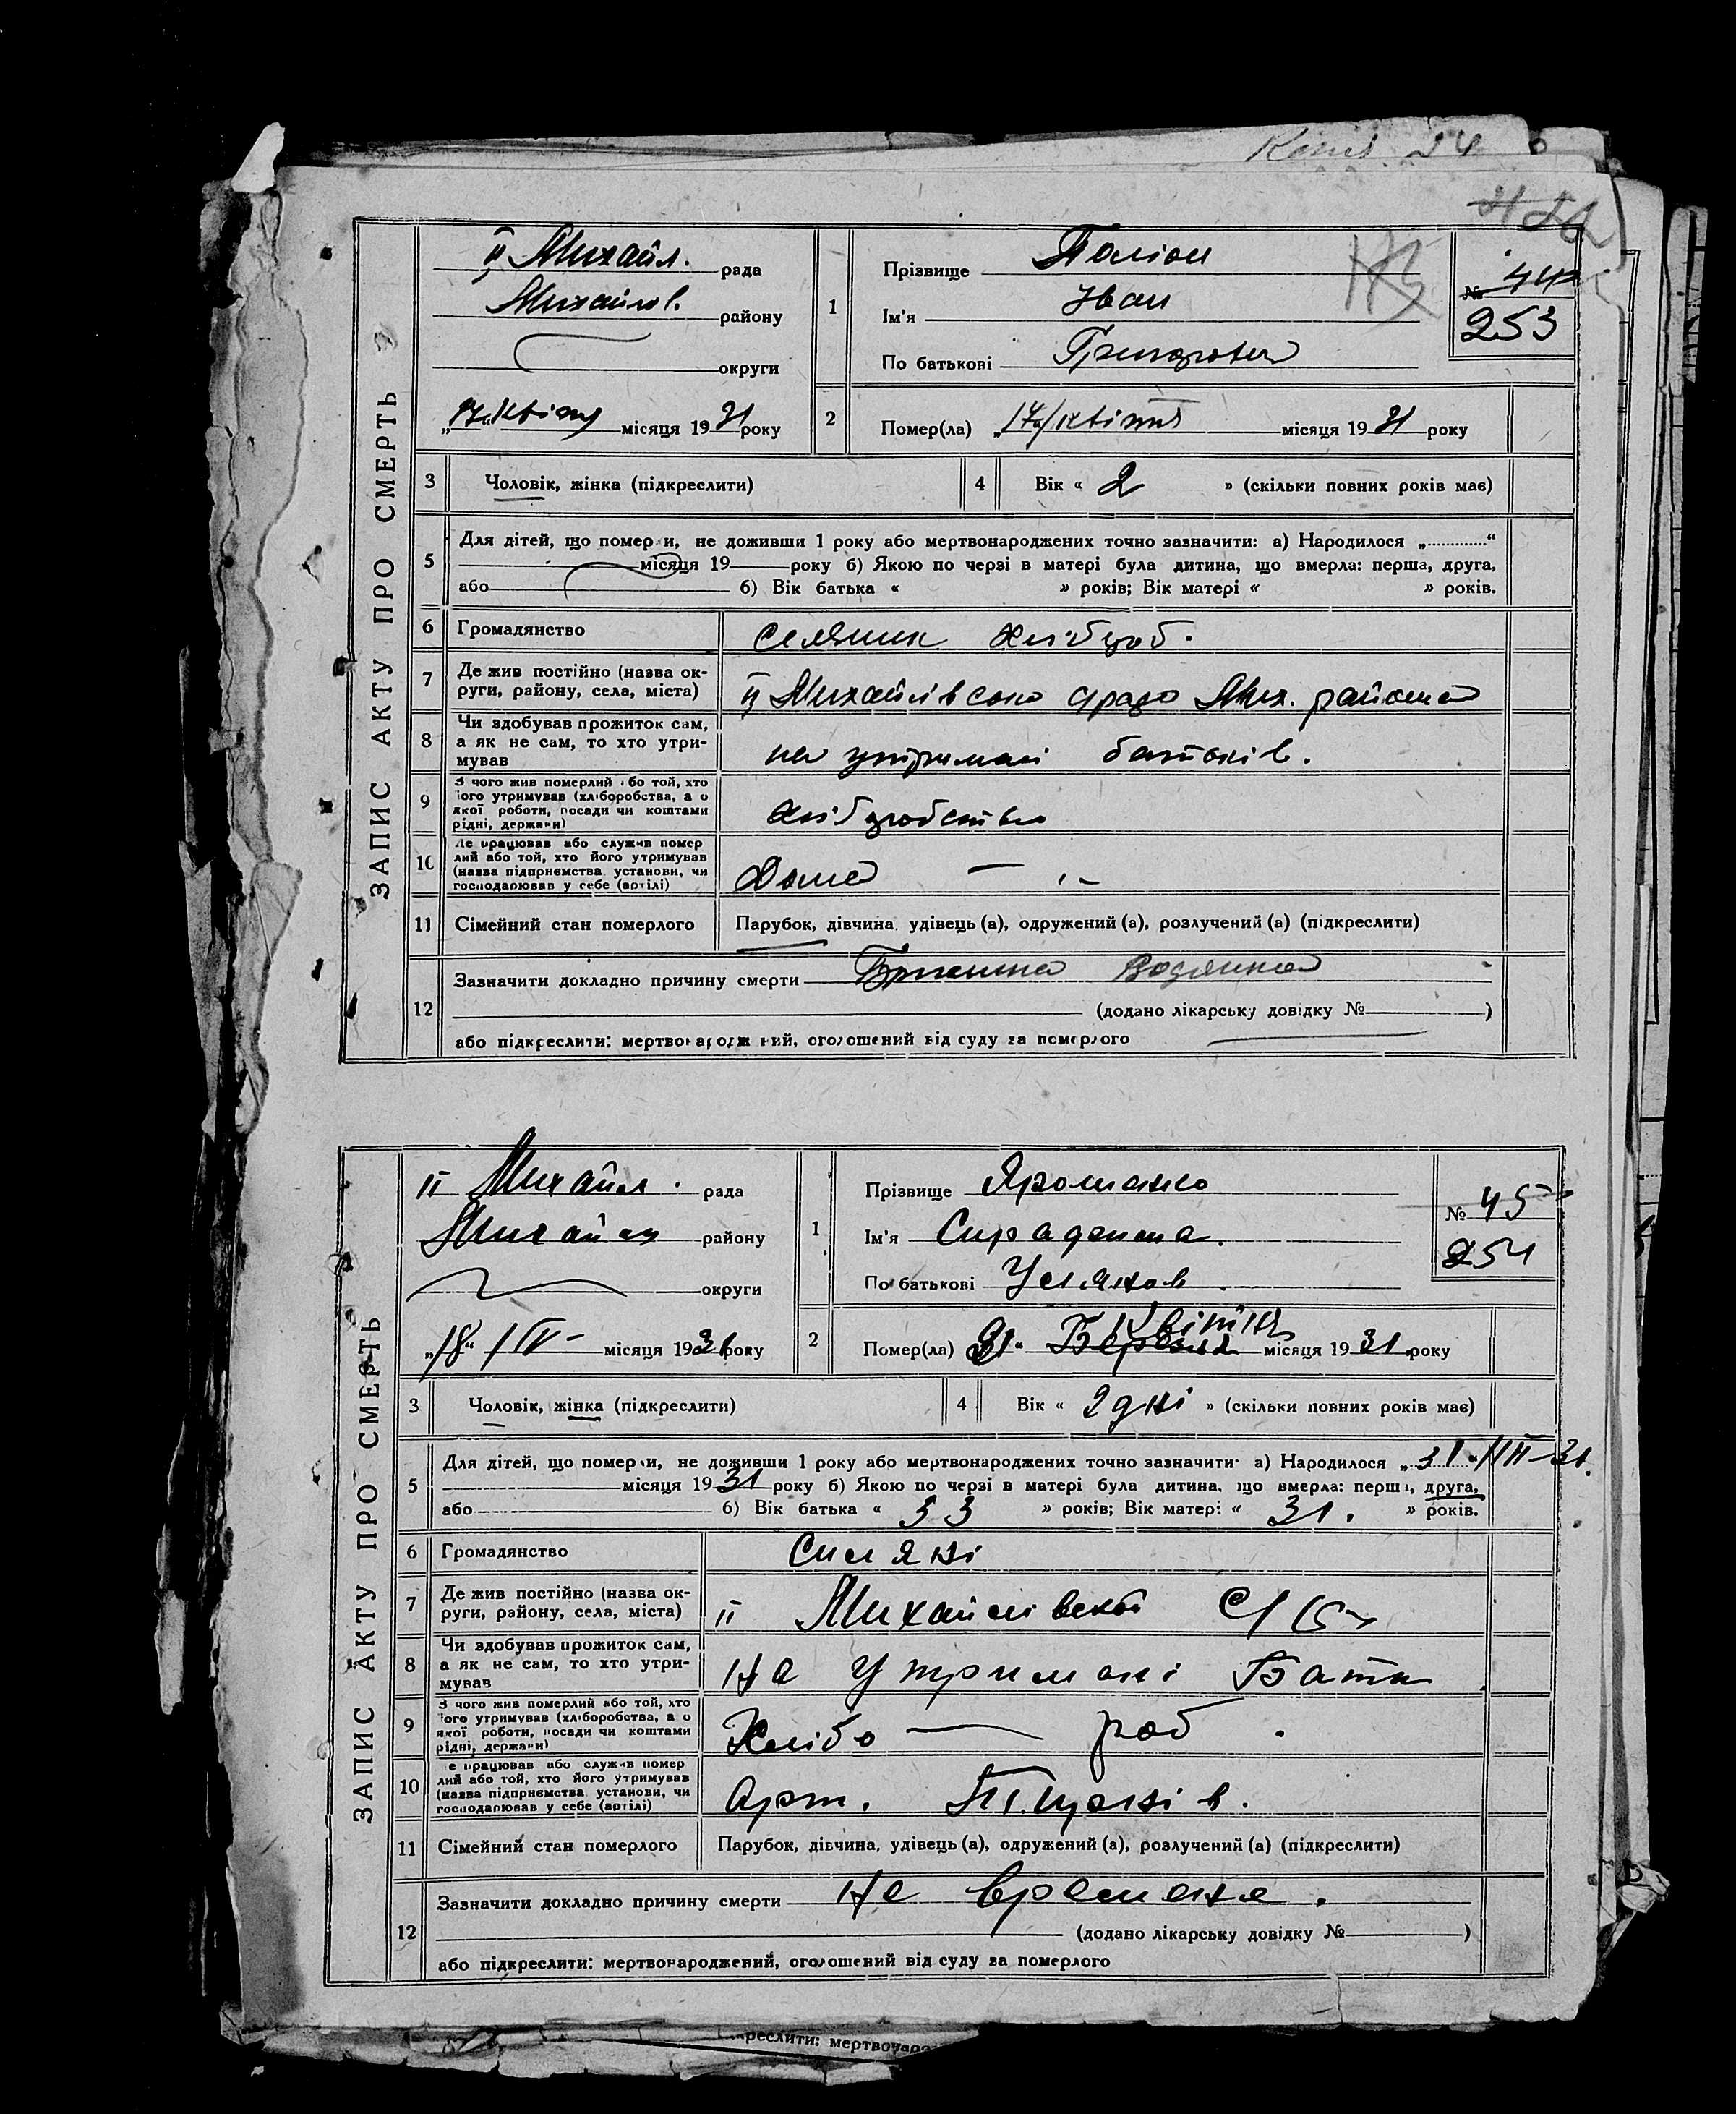 ЗАПИС АКТУ ПРО СМЕРТЬ
ІІ Михайл. рада
Михайлов. району
округи
„17“ квітня місяця 1931 року
1
Прізвище Поліон
Ім'я Іван
По батькові Григорович
№ 44
253
2 Помер(ла) „17“ квітня місяця 1931 року
3 Чоловік, жінка (підкреслити)
4 Вік « 2 » (скільки повних років має)
5 Для дітей, що померли, не доживши 1 року або мертвонароджених точно зазначити: а) Народилося „..............“
місяця 19 року б) Якою по черзі в матері була дитина, що вмерла: перша, друга,
або 6) Вік батька « » років; Вік матері « » років.
6 Громадянство селянин хлібороб.
7 Де жив постійно (назва ок-
руги, району, села, міста) ІІ Михайлівсько Мих. района
8 Чи здобував прожиток сам,
а як не сам, то хто утри-
мував на утримані батьків.
9 З чого жив померлий або той, хто
його утримував (хліборобства, а о
якої роботи, посади чи коштами
рідні, держави) хліборобство
10 Де працював або служив помер
лий або той, хто його утримував
(назва підприємства установи, чи
господарював у себе (артілі) Дома
11 Сімейний стан померлого Парубок, дівчина, удівець (а), одружений (а), розлучений (а) (підкреслити)
12 Зазначити докладно причину смерти Водянка
(додано лікарську довідку № )
або підкреслити: мертвонароджений, оголошений від суду за померлого
ЗАПИС АКТУ ПРО СМЕРТЬ
ІІ Михайл. рада
Михайл району
округи
„18“ IV місяця 1931 року
1
Прізвище Яроманко
Ім'я
По батькові
№ 45
254
квітня
2 Помер(ла) Березня місяця 1931. року
3 Чоловік, жінка (підкреслити)
4 Вік « 2 дні » (скільки повних років має)
5 Для дітей, що померли, не доживши 1 року або мертвонароджених точно зазначити: а) Народилося „31“ III-31.
місяця 1931 року б) Якою по черзі в матері була дитина, що вмерла: перша, друга,
або 6) Вік батька « 33 » років; Вік матері « 31. » років.
6 Громадянство Силяні
7 Де жив постійно (назва ок-
руги, району, села, міста) ІІ Михайлівській
8 Чи здобував прожиток сам,
а як не сам, то хто утри-
мував На утримані Батьк
9 З чого жив померлий або той, хто
його утримував (хліборобства, а о
якої роботи, посади чи коштами
рідні, держави) Хлібо — роб.
10 Де працював або служив помер
лий або той, хто його утримував
(назва підприємства установи, чи
господарював у себе (артілі) Арт.
11 Сімейний стан померлого Парубок, дівчина, удівець (а), одружений (а), розлучений (а) (підкреслити)
12 Зазначити докладно причину смерти Не времене.
(додано лікарську довідку № )
або підкреслити: мертвонароджений, оголошений від суду за померлого